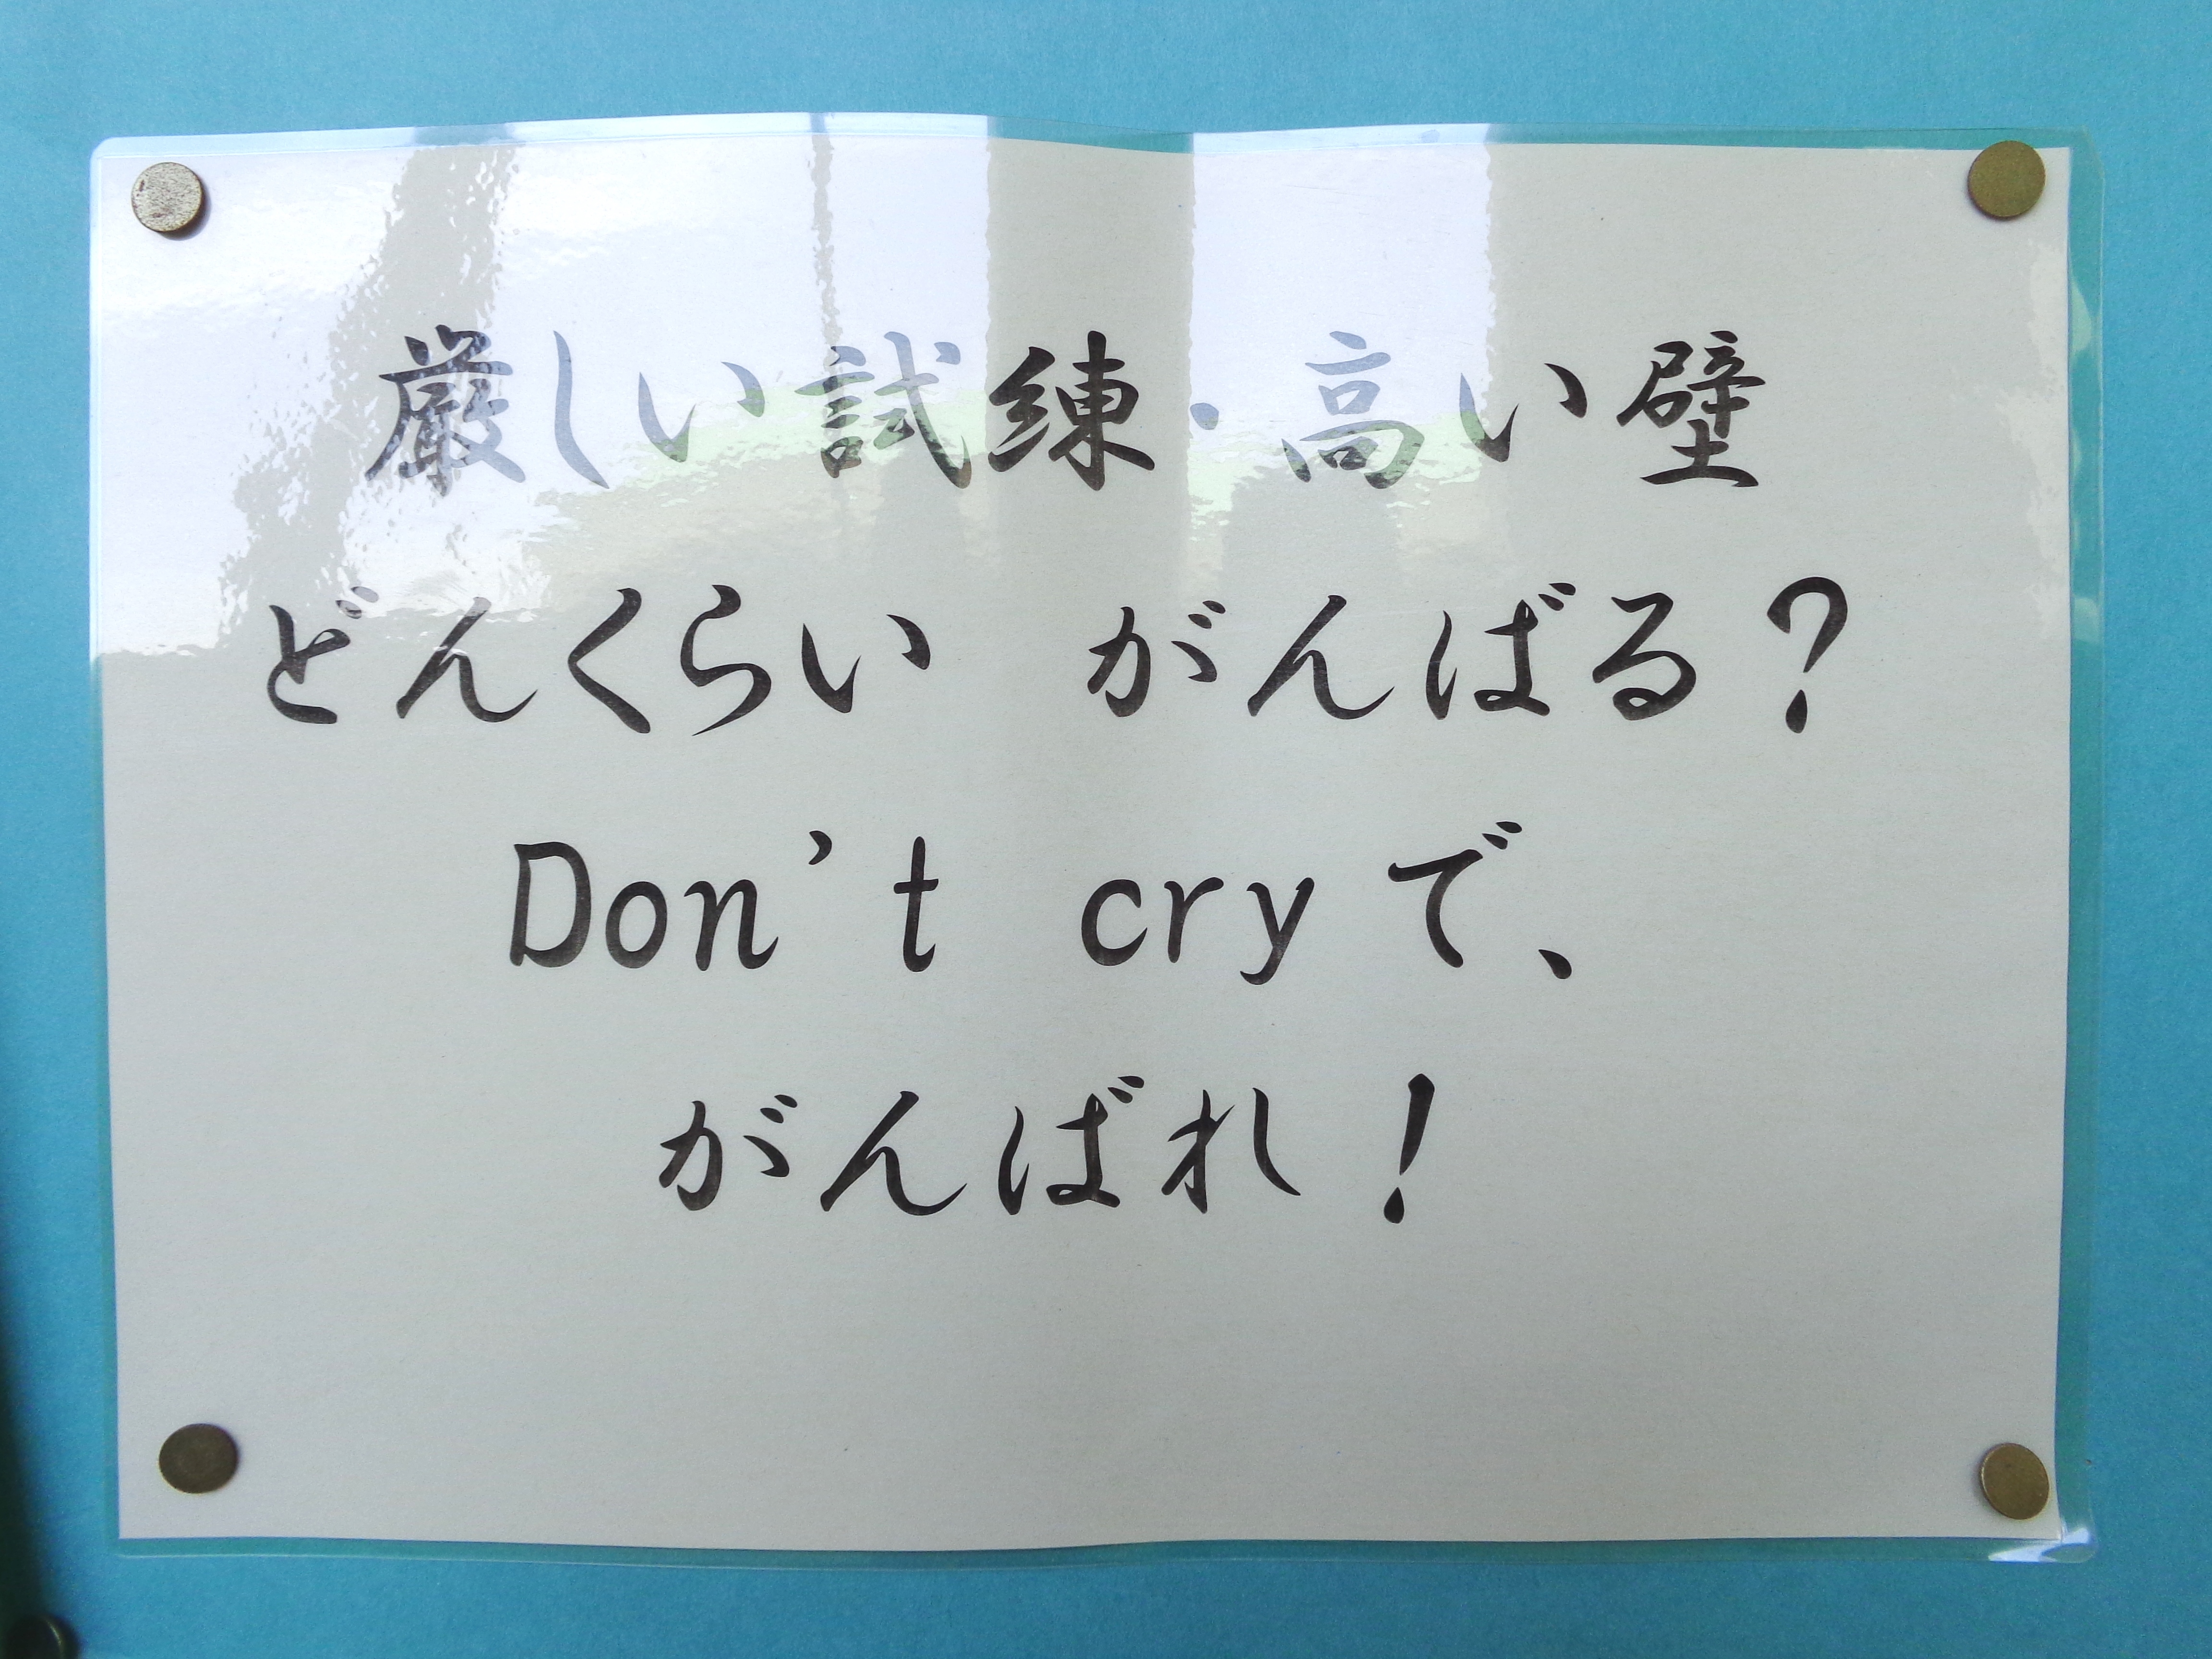 厳しい試練・高い壁
どんくらい　がんばる？
Don't cryで、
がんばれ！